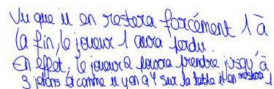 Vu que il en restera forcément 1 à
la fin, le joueur 1 aura perdu.
En effet, le joueur 2 pourra prendre jusqu'à
3 jetons là comme il y en a 4 sur la table il en restera 1